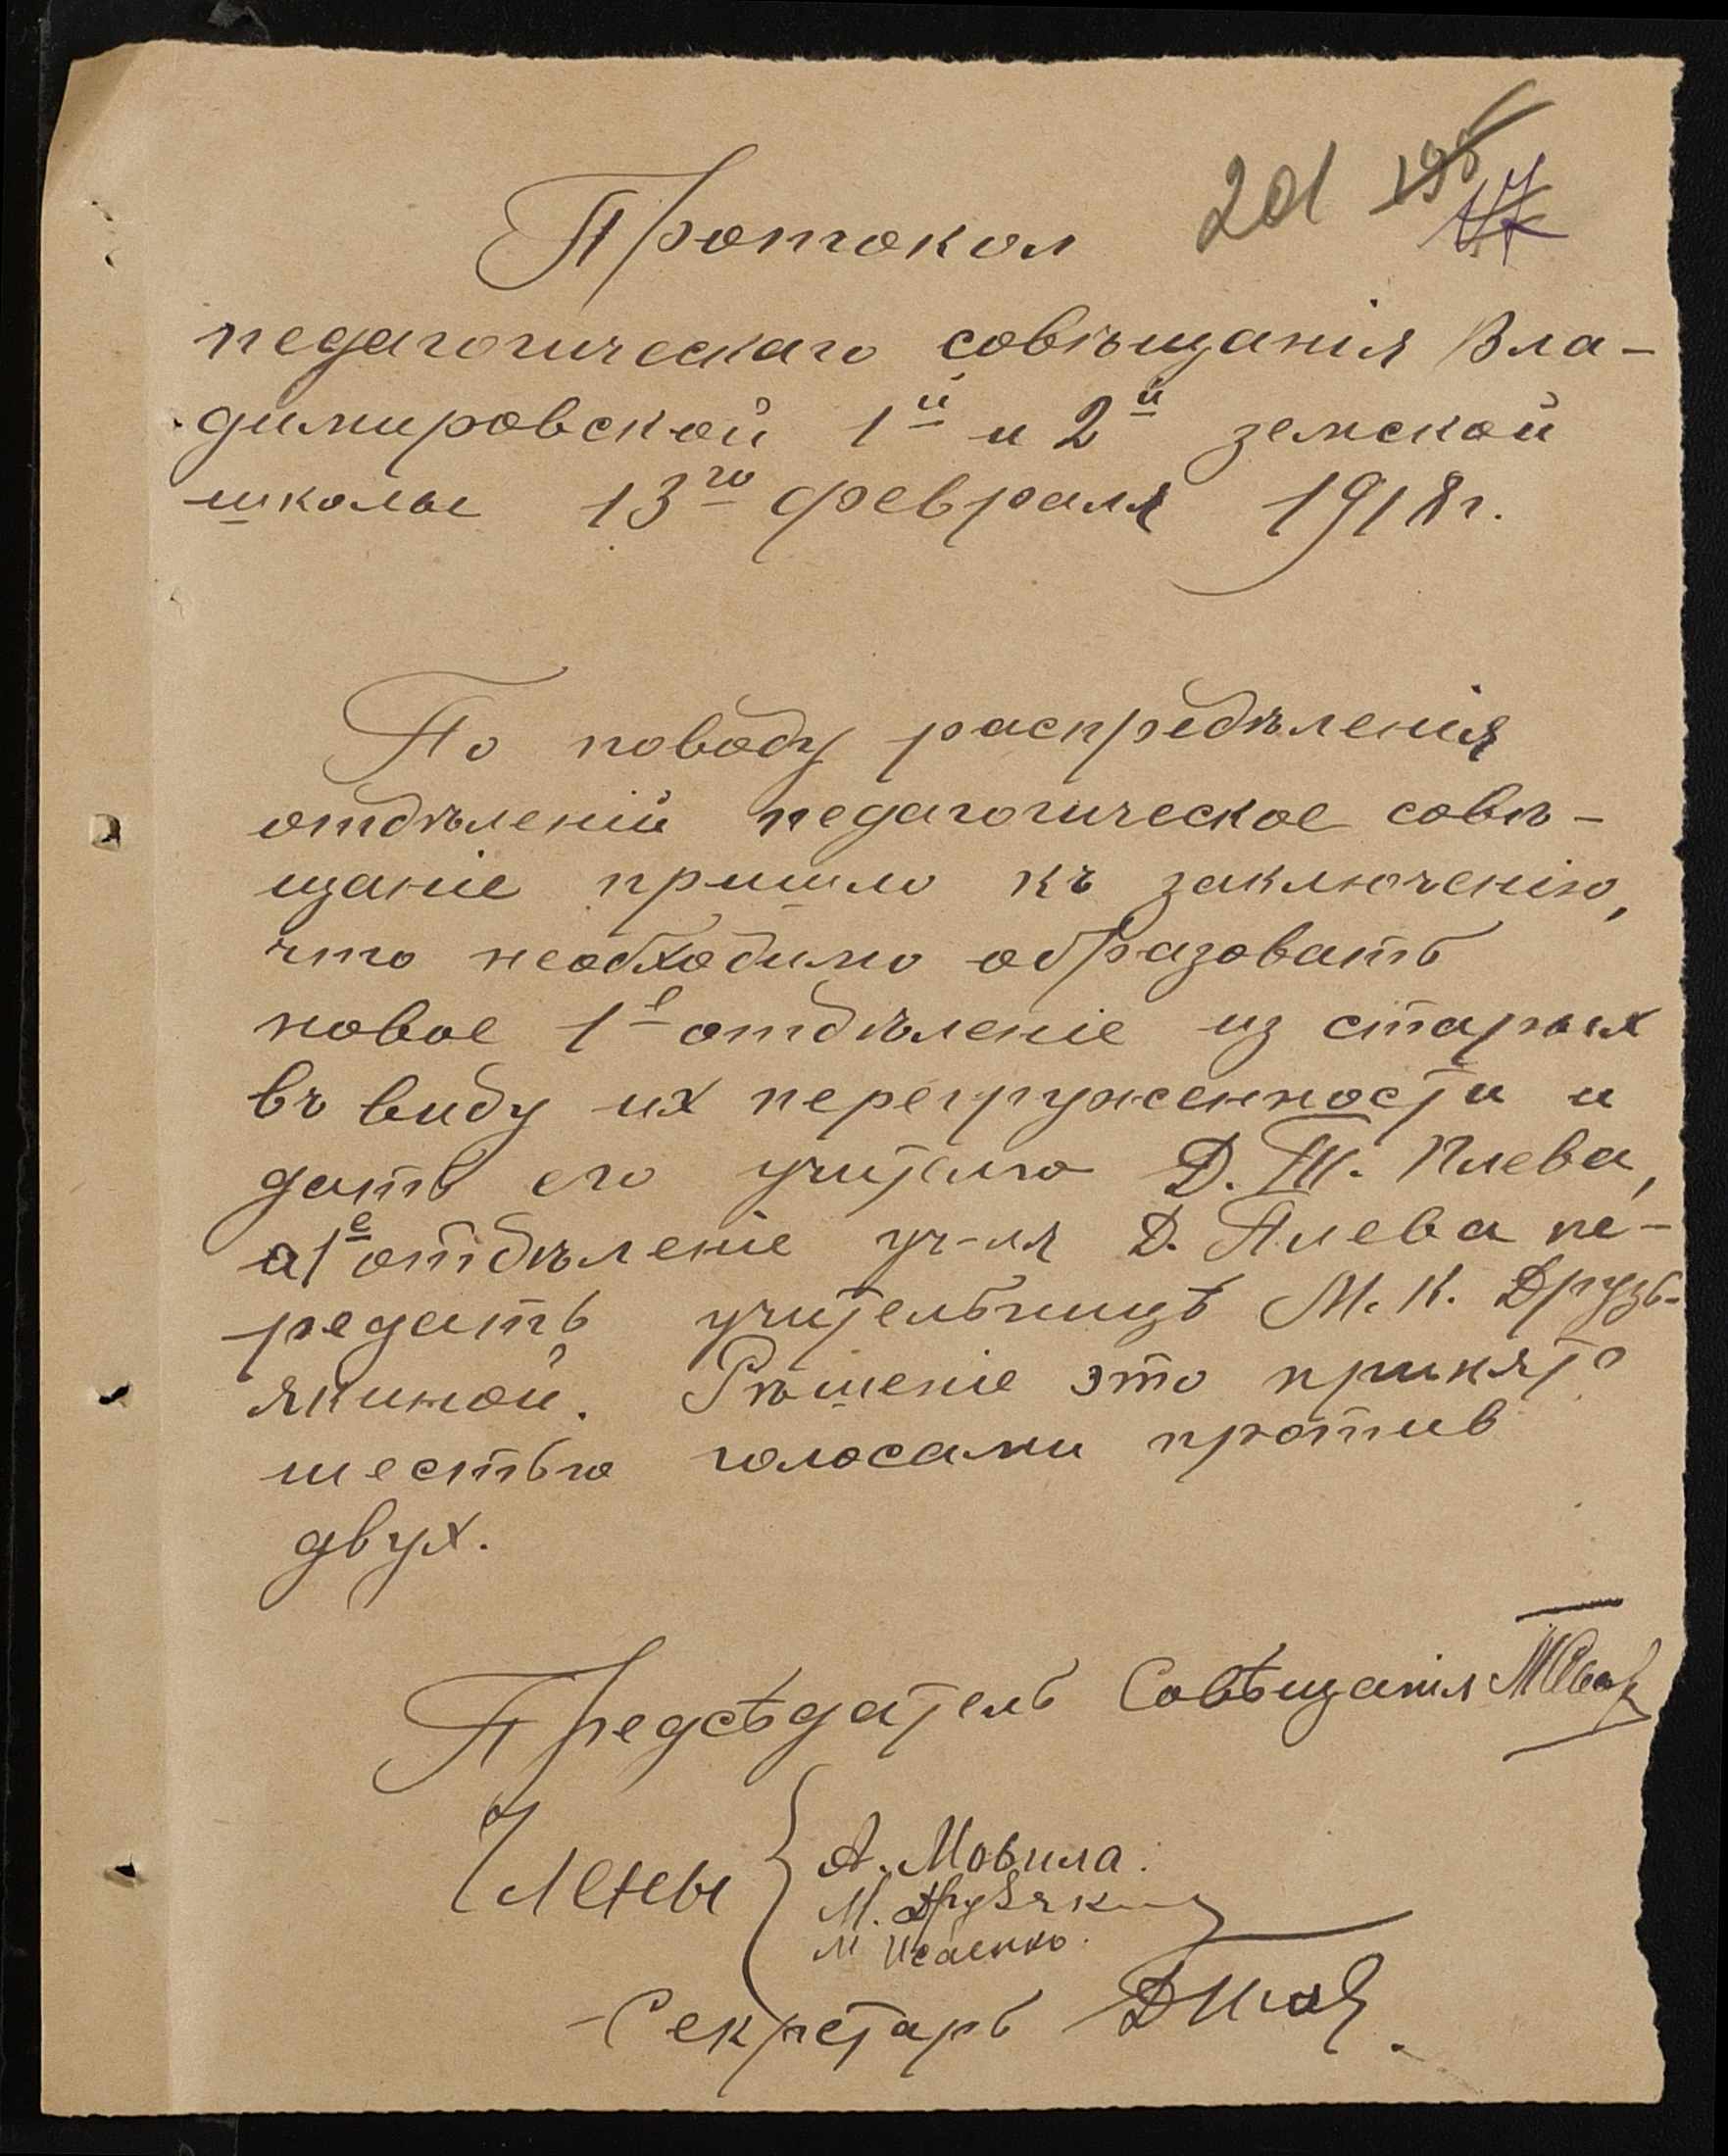 201 195
17
Протокол
педагогическаго совѣщанія Вла-
димировской 1й и 2й земской
школы 13го февраля 1918г.
По поводу распредѣленія
отдѣленій педагогическое совѣ-
щаніе пришло къ заключенію,
что необходимо образовать
новое 1е отдѣленіе из старых
въ виду их перегруженности и
дать его учителю Д. Т. Плева,
а 1е отдѣленіе уч-ля Д. Плева пе-
редать учительницѣ М. К. Друзь-
якиной. Рѣшеніе это принято
шестью голосами против
двух.
Предсѣдатель Совѣщанія
Члены А. Мовила.
М. Друзякина
М Исаенко.
Секретарь